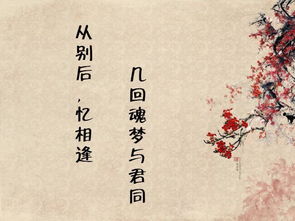 从别后，忆相逢
几回魂梦与君同